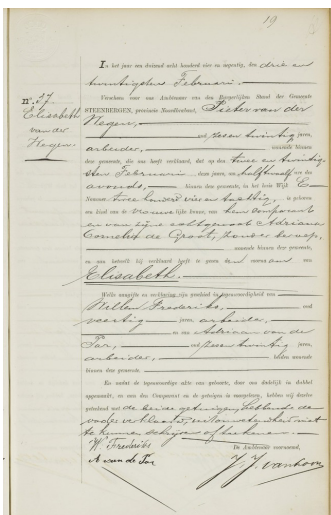 19
In het jaar een duizend acht honderd vier en negentig, den drie en
twintigsten Februari.
Verscheen voor ons Ambtenaar van den Burgerlijken Stand der Gemeente
STEENBERGEN, provincie Noordbrabant, Pieter van der
Wegen,
oud zesen twintig jaren,
arbeider, wonende binnen
deze gemeente, die ons heeft verklaard, dat op den twee en twintig-
sten Februari dezes jaars, om half twaalf ure des
avonds, binnen de gemeente, in het huis Wijk E
Nommer twee honderd vier en tachtig, is geboren
een kind van de vrouwelijke kunne, van hem Comparant
en van zijne echtgenoote Adriana
Cornelia de Groot, zonder beroep,
wonende binnen de gemeente,
en aan hetwelk hij verklaard heeft te geven den voornaam van
Elisabeth.
Welke aangifte en verklaring zijn geschied in tegenwoordigheid van
Willem Frederiks, oud
veertig jaren, arbeider,
en van Adriaan van de
Par, oud zesen twintig jaren,
arbeider, beiden wonende
binnen deze gemeente.
En omdat de tegenwoordige akte van geboorte, door ons dadelijk in dubbel
opgemaakt, en aan den Comparant en de getuigen is voorgelezen, hebben wij dezelve
geteekend met de beide getuigen, hebbende de
vader verklaard, uit onwetendheid niet
te kunnen schrijven of teekenen.
W. Frederiks
De Ambtenaar voornoemd,
A van de Par
J. J. van Loon
No. 37.
Elisabeth
van der
Wegen.